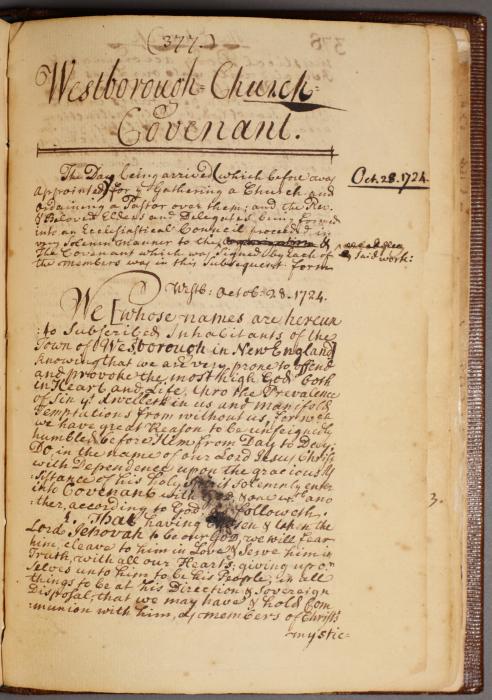 (377.)
Westborough-Church-
Covenant.
The Day being arrived (which before was
Appointed) for ye Gathering a Church and
Ordaining a Pastor over them; and the Rev.
& Beloved Elders and Delegates being formed
into an Ecclesiastical Council proceeded in
very Solemn Manner to the &
The Covenant which was Signed by Each of
the members was in this Subsequent form
Oct. 28. 1724.
said work:
Westb: Octob. 28. 1724.
We [whose names are hereun
:to Subscribed Inhabitants of the
Town of Westborough in New England]
Knowing that we are very prone to offend
and provoke the most High God both
in Heart and Life, thro the Prevalence
of Sin yt dwelleth in us and Manifold
Temptations from without us, for wch
we have great Reason to be unfeignedly
humbled before Him from Day to Day;
Do, in the name of our Lord Jesus Christ
with Dependence upon the gracious As
sistance of his Holy Spirit Solemnly enter
into Covenant with God, & one wth ano
ther, according to God as followeth.
1. That having Chosen & taken the
Lord Jehovah to be our God, we will fear
him, cleave to him in Love & Serve him in
Truth, with all our Hearts; giving up or
Selves unto him to be his People, in all
things to be at his Direction & Sovereign
Disposal, that we may have & hold Com
munion with him, as members of Christ's
mystic=
3.